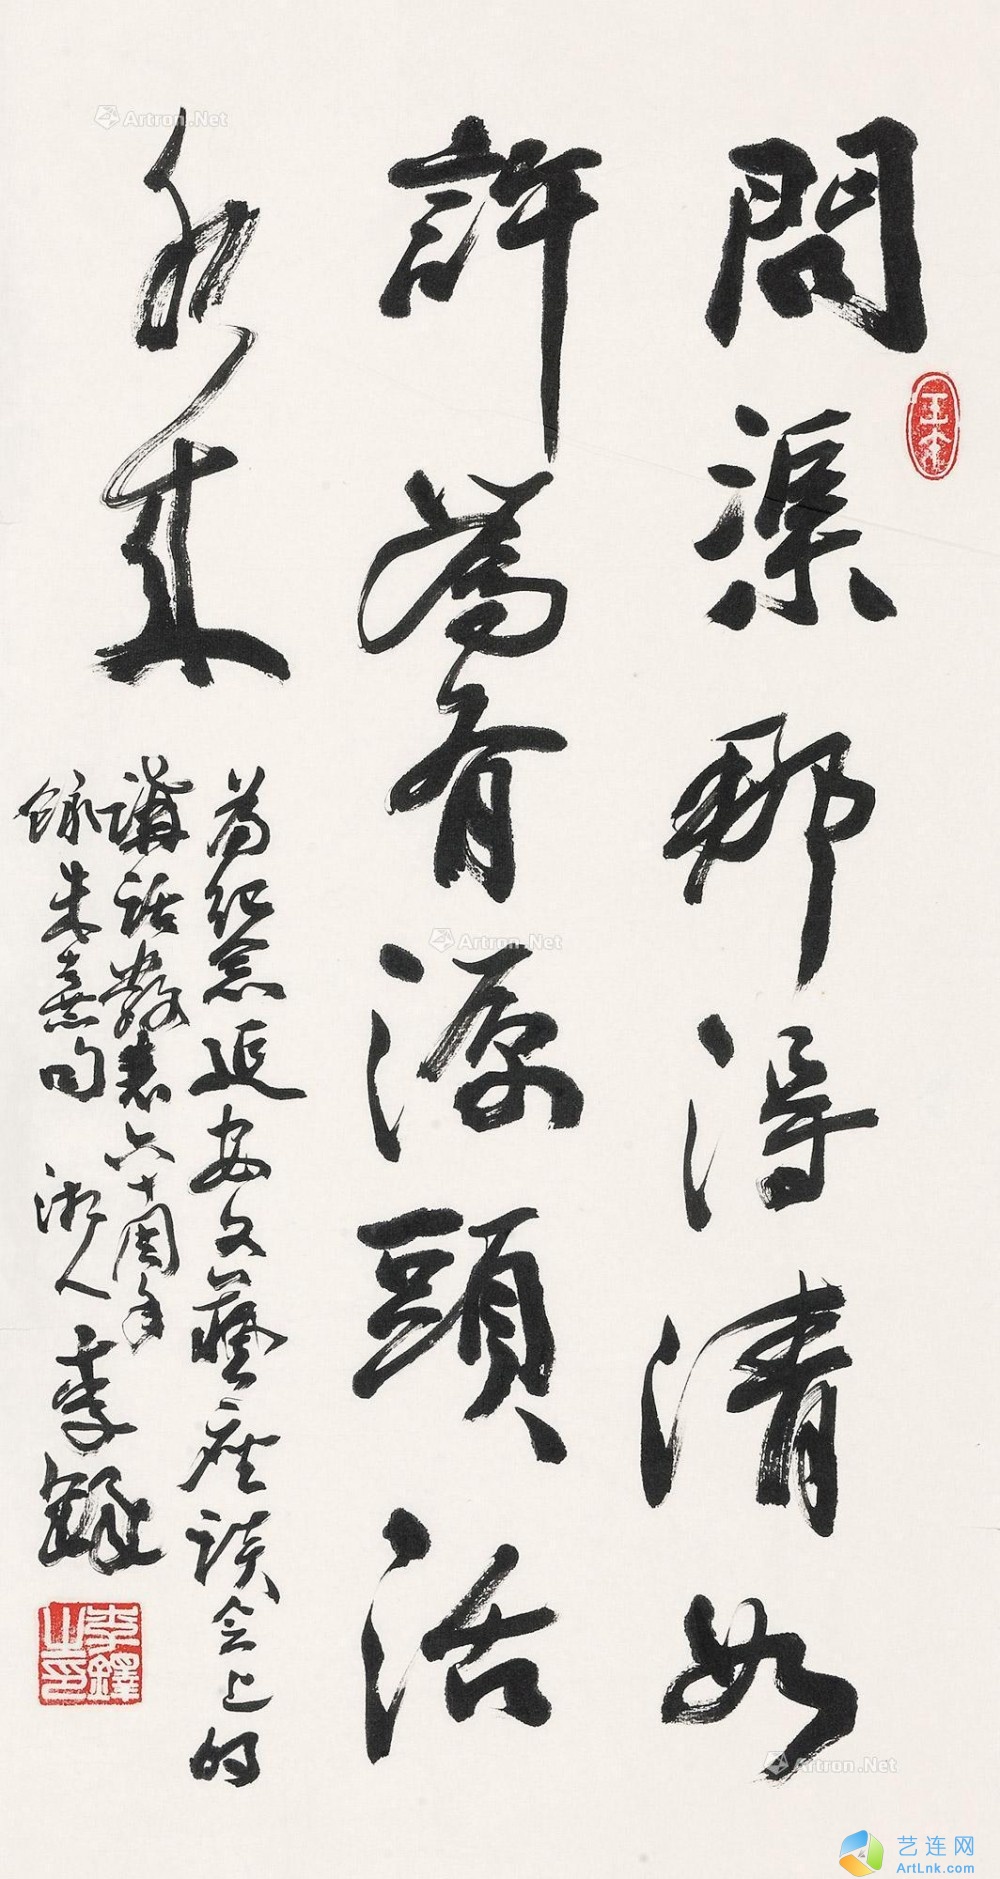 問渠那得清如
許為有源頭活
水来
为纪念延安文藝座谈会上的
講话發表六十周年
录朱熹句 湘人李鐸
李鐸之印
Artron.Net
Artron.Net
Artron.Net
艺连网
ArtLnk.com